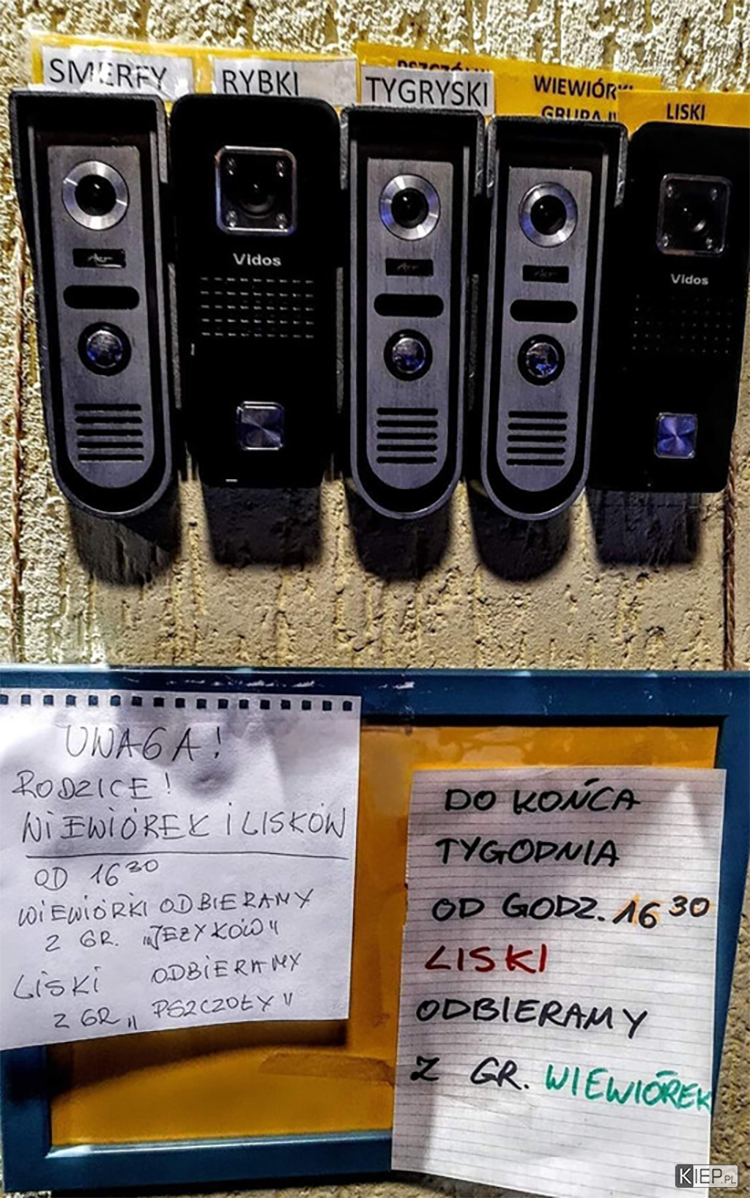 SMERFY
RYBKI
TYGRYSKI
WIEWIÓRK
GRUPA I
LISKI
Vidos
Vidos
UWAGA!
RODZICE!
WIEWIÓREK i LISKÓW
OD 16³⁰
WIEWIÓRKI ODBIERAMY
Z GR. „JEŻYKÓW"
LISKI ODBIERAMY
Z GR „PSZCZOŁY"
DO KOŃCA
TYGODNIA
OD GODZ. 16³⁰
LISKI
ODBIERAMY
Z GR. WIEWIÓREK
KIEP.PL